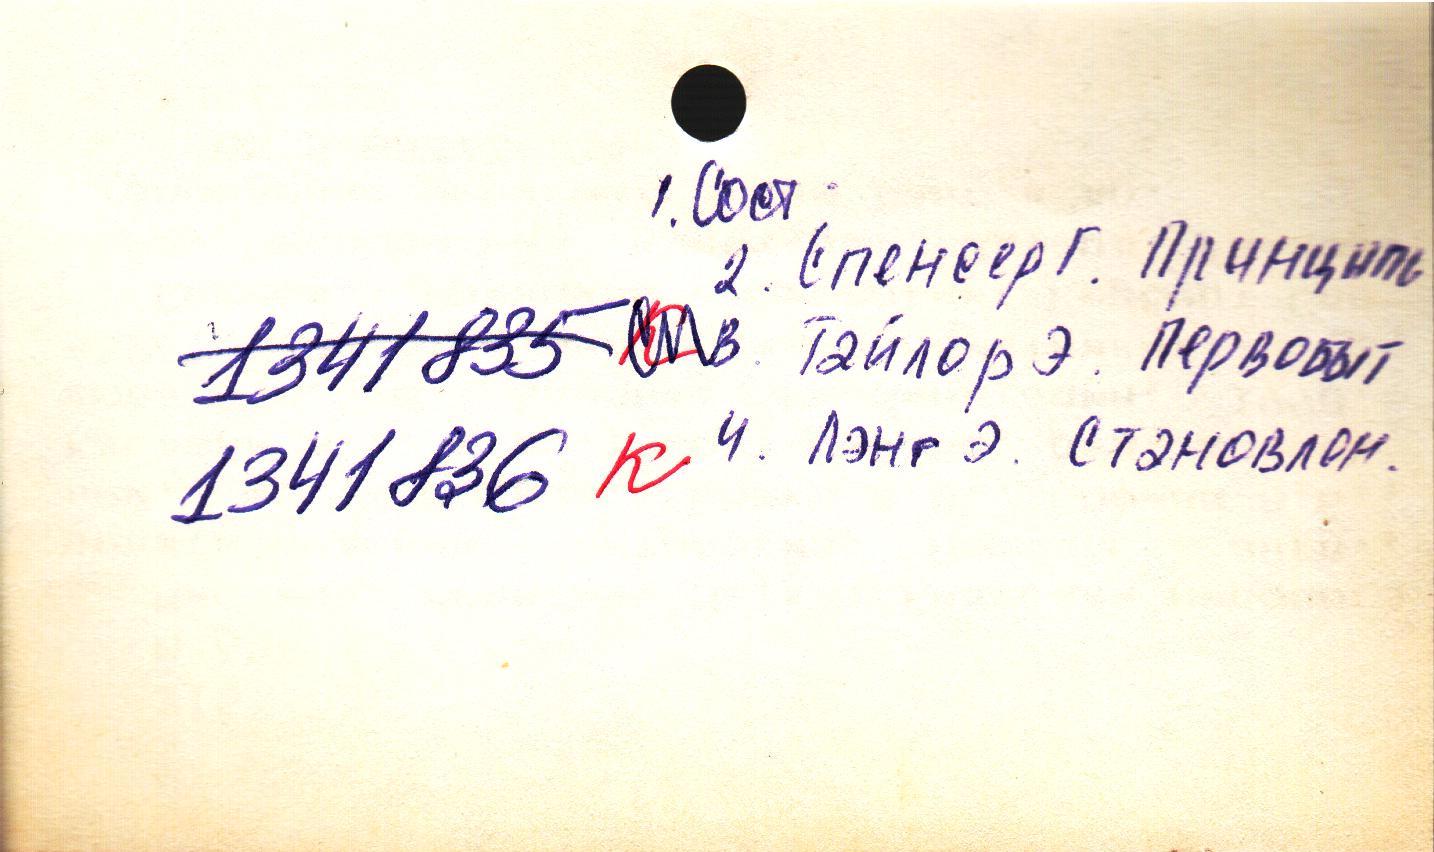 1. Сост.
2. Спенсер Г. Принципы
1341835
3. Тайлор Э. Первобыт
1341836 К
4. Лэнг Э. Становлен.